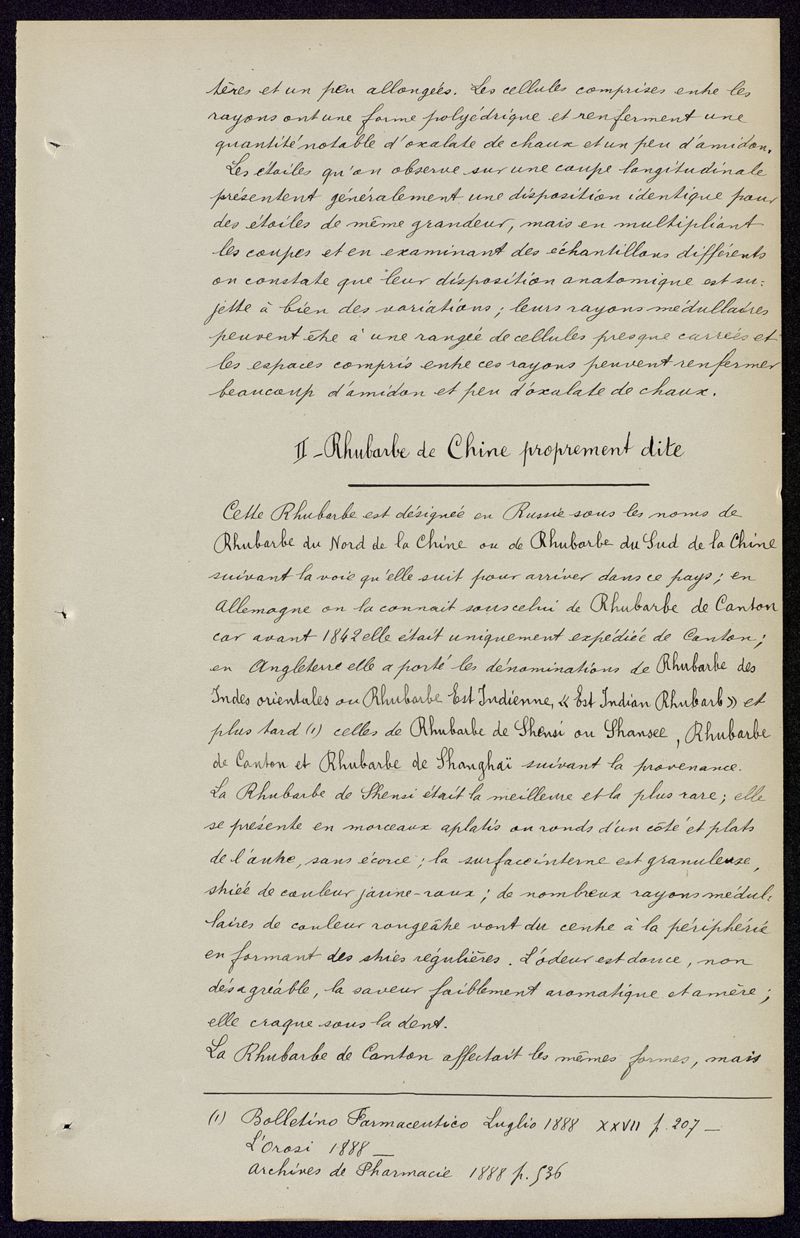 tères et un peu allongées. Les cellules comprises entre les
rayons ont une forme polyédrique et renferment une
quantité notable d'oxalate de chaux et un peu d'amidon.
Les étoiles qu'on observe sur une coupe longitudinale
présentent généralement une disposition identique pour
des étoiles de même grandeur, mais en multipliant
les coupes et en examinant des échantillons différents
on constate que leur disposition anatomique est su-
jette à bien des variations ; leurs rayons médullaires
peuvent être à une rangée de cellules presque carrées et
les espaces compris entre ces rayons peuvent renfermer
beaucoup d'amidon et peu d'oxalate de chaux.
II - Rhubarbe de Chine proprement dite
Cette Rhubarbe est désignée en Russie sous les noms de
Rhubarbe du Nord de la Chine ou de Rhubarbe du Sud de la Chine
suivant la voie qu'elle suit pour arriver dans ce pays ; en
Allemagne on la connait sous celui de Rhubarbe de Canton
car avant 1842 elle était uniquement expédiée de Canton ;
en Angleterre elle a porté les dénominations de Rhubarbe des
Indes orientales ou Rhubarbe Est Indienne, « Est Indian Rhubarb » et
plus tard (1) celles de Rhubarbe de Shensi ou Shansee, Rhubarbe
de Canton et Rhubarbe de Shanghaï suivant la provenance.
La Rhubarbe de Shensi était la meilleure et la plus rare ; elle
se présente en morceaux aplatis ou ronds d'un côté et plats
de l'autre, sans écorce ; la surface interne est granuleuse,
striée de couleur jaune-roux ; de nombreux rayons médul-
laires de couleur rougeâtre vont du centre à la périphérie
en formant des stries régulières. L'odeur est douce, non
désagréable, la saveur faiblement aromatique et amère ;
elle craque sous la dent.
La Rhubarbe de Canton affectait les mêmes formes, mais
(1) Bolletino Farmaceutico Luglio 1888 XXVII p. 207 —
L'Orosi 1888 —
Archives de Pharmacie 1888 p. 536